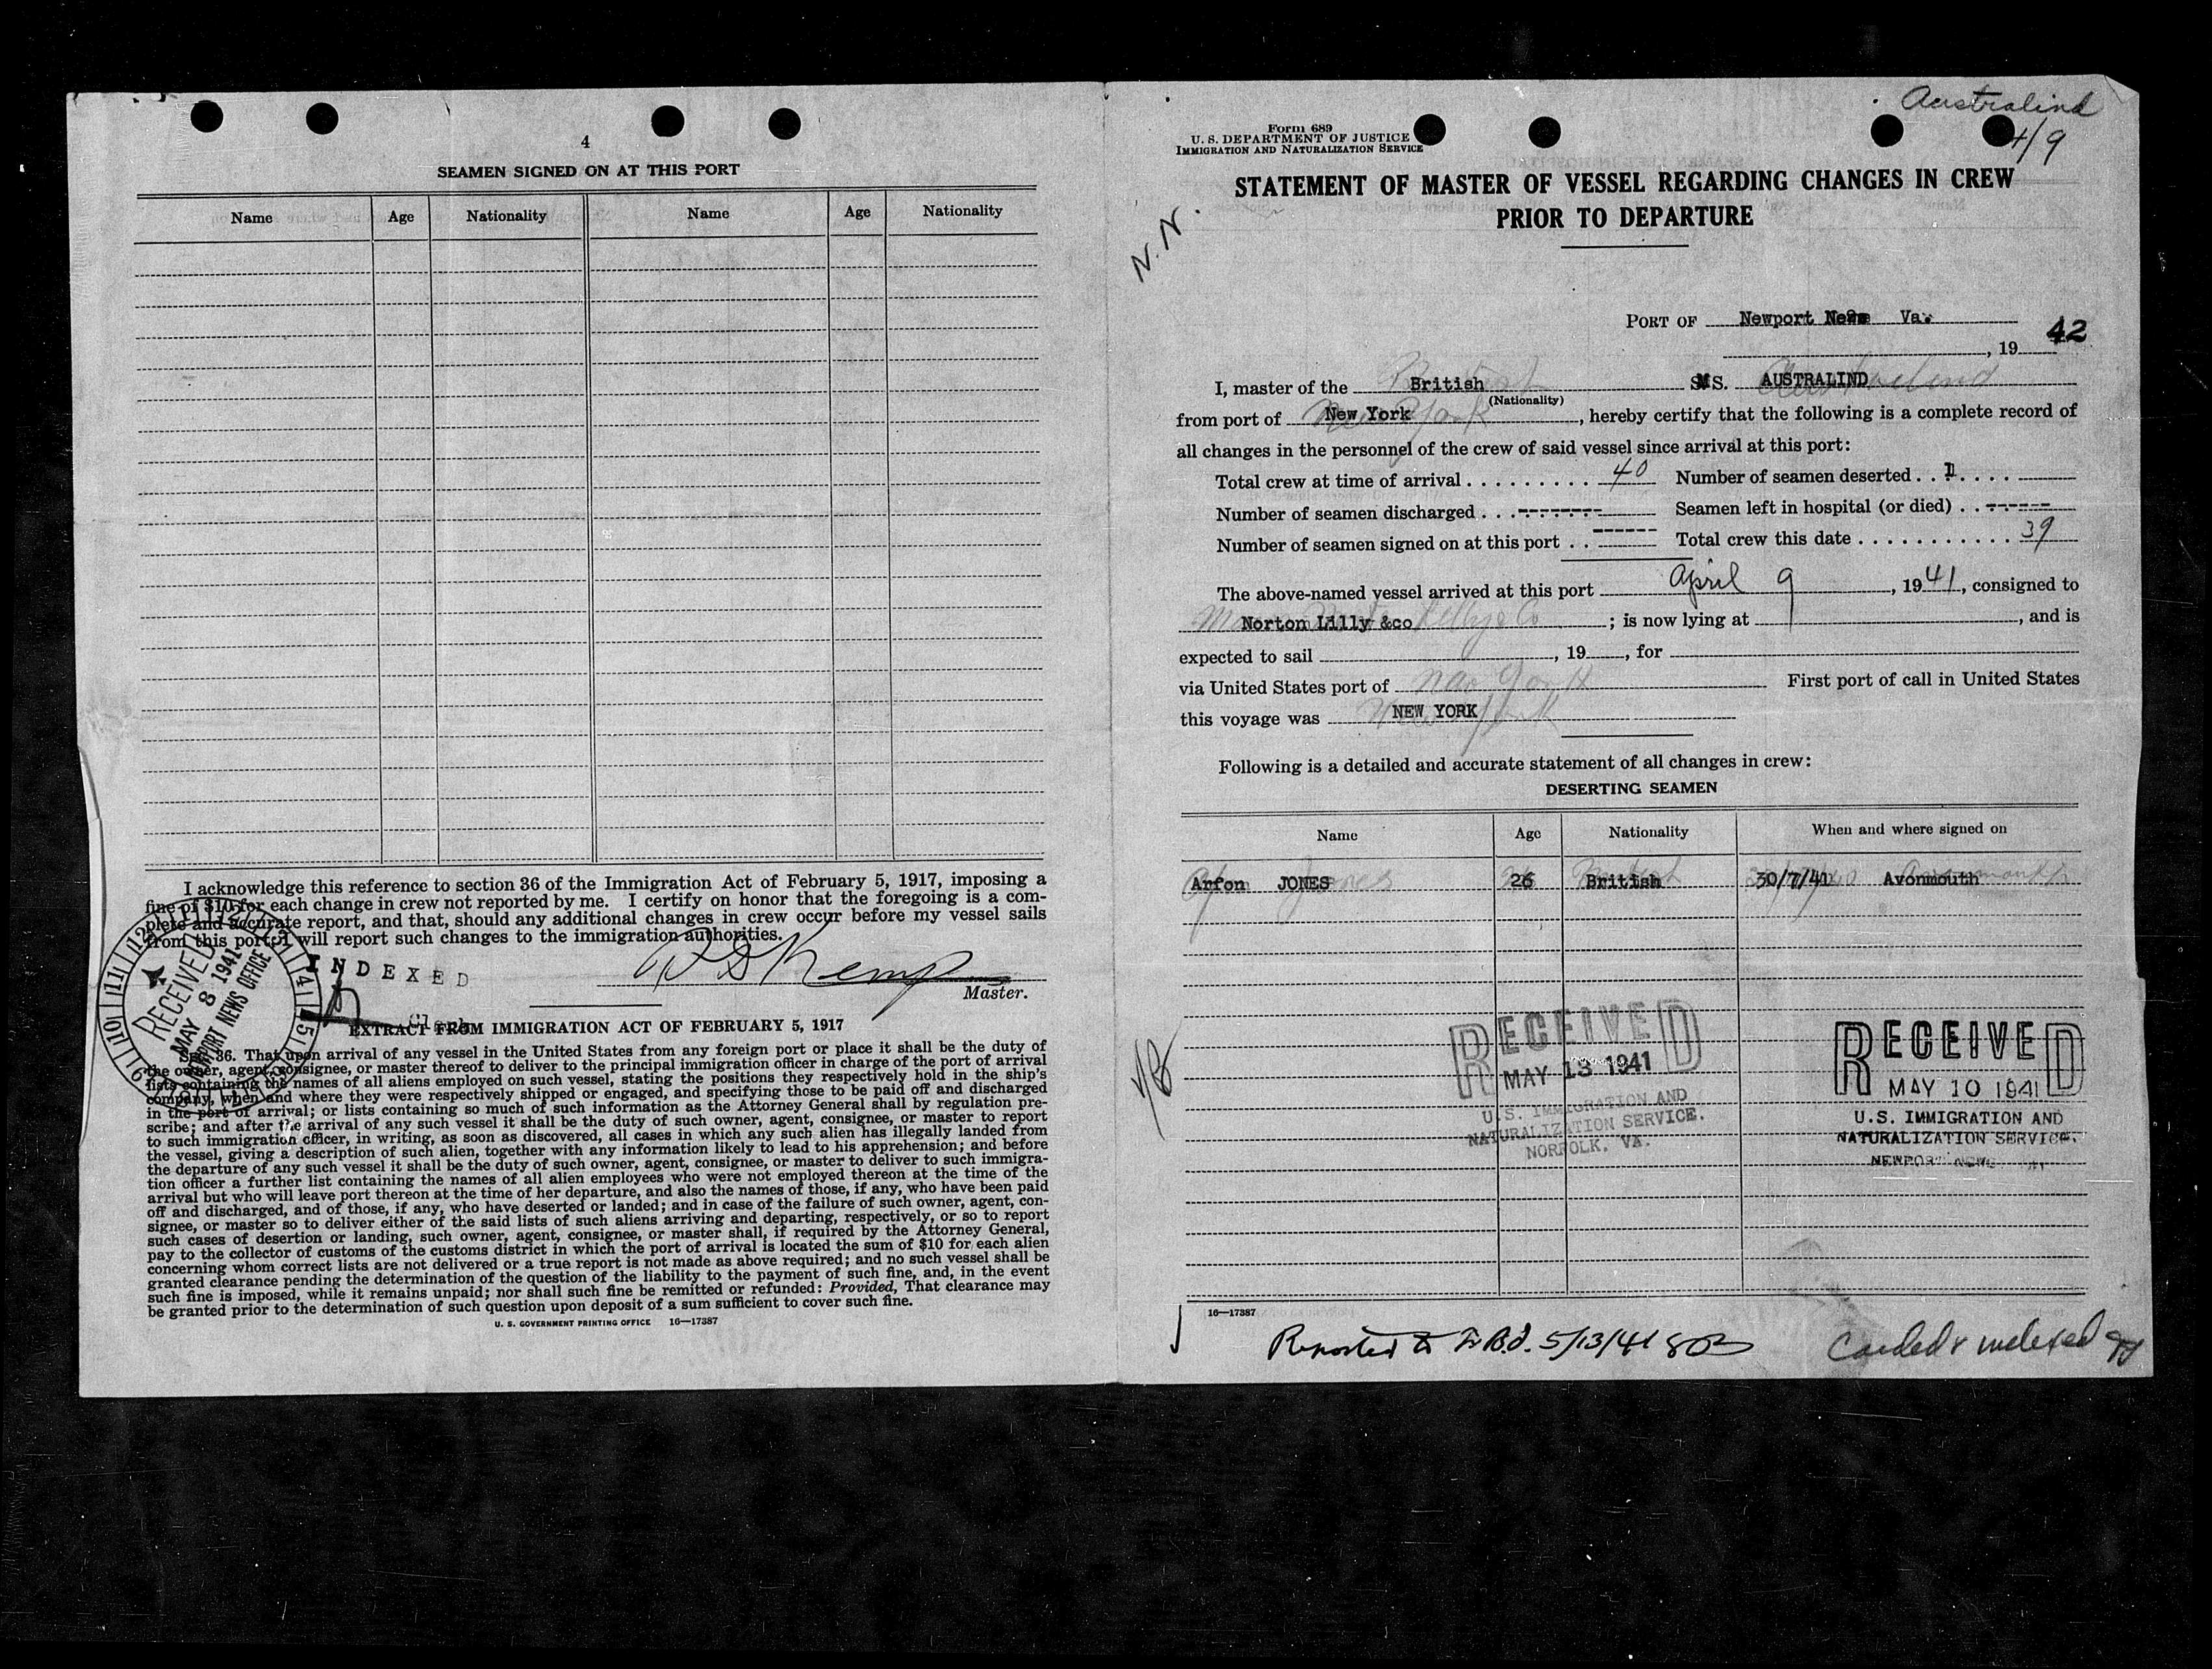 4
SEAMEN SIGNED ON AT THIS PORT
Name Age Nationality Name Age Nationality
I acknowledge this reference to section 36 of the Immigration Act of February 5, 1917, imposing a
fine of $10 for each change in crew not reported by me. I certify on honor that the foregoing is a com-
plete and accurate report, and that, should any additional changes in crew occur before my vessel sails
from this port, I will report such changes to the immigration authorities.
RECEIVED
MAY 8 1941
NEWPORT NEWS OFFICE
INDEXED
Kemp
Master.
Clerk
EXTRACT FROM IMMIGRATION ACT OF FEBRUARY 5, 1917
Sec. 36. That upon arrival of any vessel in the United States from any foreign port or place it shall be the duty of
the owner, agent, consignee, or master thereof to deliver to the principal immigration officer in charge of the port of arrival
lists containing the names of all aliens employed on such vessel, stating the positions they respectively hold in the ship's
company, when and where they were respectively shipped or engaged, and specifying those to be paid off and discharged
in the port of arrival; or lists containing so much of such information as the Attorney General shall by regulation pre-
scribe; and after the arrival of any such vessel it shall be the duty of such owner, agent, consignee, or master to report
to such immigration officer, in writing, as soon as discovered, all cases in which any such alien has illegally landed from
the vessel, giving a description of such alien, together with any information likely to lead to his apprehension; and before
the departure of any such vessel it shall be the duty of such owner, agent, consignee, or master to deliver to such immigra-
tion officer a further list containing the names of all alien employees who were not employed thereon at the time of the
arrival but who will leave port thereon at the time of her departure, and also the names of those, if any, who have been paid
off and discharged, and of those, if any, who have deserted or landed; and in case of the failure of such owner, agent, con-
signee, or master so to deliver either of the said lists of such aliens arriving and departing, respectively, or so to report
such cases of desertion or landing, such owner, agent, consignee, or master shall, if required by the Attorney General,
pay to the collector of customs of the customs district in which the port of arrival is located the sum of $10 for each alien
concerning whom correct lists are not delivered or a true report is not made as above required; and no such vessel shall be
granted clearance pending the determination of the question of the liability to the payment of such fine, and, in the event
such fine is imposed, while it remains unpaid; nor shall such fine be remitted or refunded: Provided, That clearance may
be granted prior to the determination of such question upon deposit of a sum sufficient to cover such fine.
U. S. GOVERNMENT PRINTING OFFICE 16—17387
Australind
4/9
Form 689
U. S. DEPARTMENT OF JUSTICE
IMMIGRATION AND NATURALIZATION SERVICE
STATEMENT OF MASTER OF VESSEL REGARDING CHANGES IN CREW
PRIOR TO DEPARTURE
N. N.
PORT OF Newport News Va.
, 19 42
I, master of the British M S. AUSTRALIND
(Nationality)
from port of New York, hereby certify that the following is a complete record of
all changes in the personnel of the crew of said vessel since arrival at this port:
Total crew at time of arrival . . . . . . . . . 40 Number of seamen deserted . . 1 . . . .
Number of seamen discharged . . . ------- Seamen left in hospital (or died) . . ------
Number of seamen signed on at this port . . ------ Total crew this date . . . . . . . . . . . 39
The above-named vessel arrived at this port April 9, 1941, consigned to
Norton Lilly &co ; is now lying at , and is
expected to sail , 19 , for
via United States port of New York First port of call in United States
this voyage was NEW YORK
Following is a detailed and accurate statement of all changes in crew:
DESERTING SEAMEN
Name Age Nationality When and where signed on
Arfon JONES 26 British 30/7/41 Avonmouth
RECEIVED
MAY 13 1941
U.S. IMMIGRATION AND
NATURALIZATION SERVICE.
NORFOLK, VA.
RECEIVED
MAY 10 1941
U.S. IMMIGRATION AND
NATURALIZATION SERVICE.
NEWPORT NEWS
16—17387
Reported to 5/13/41
Carded & indexed